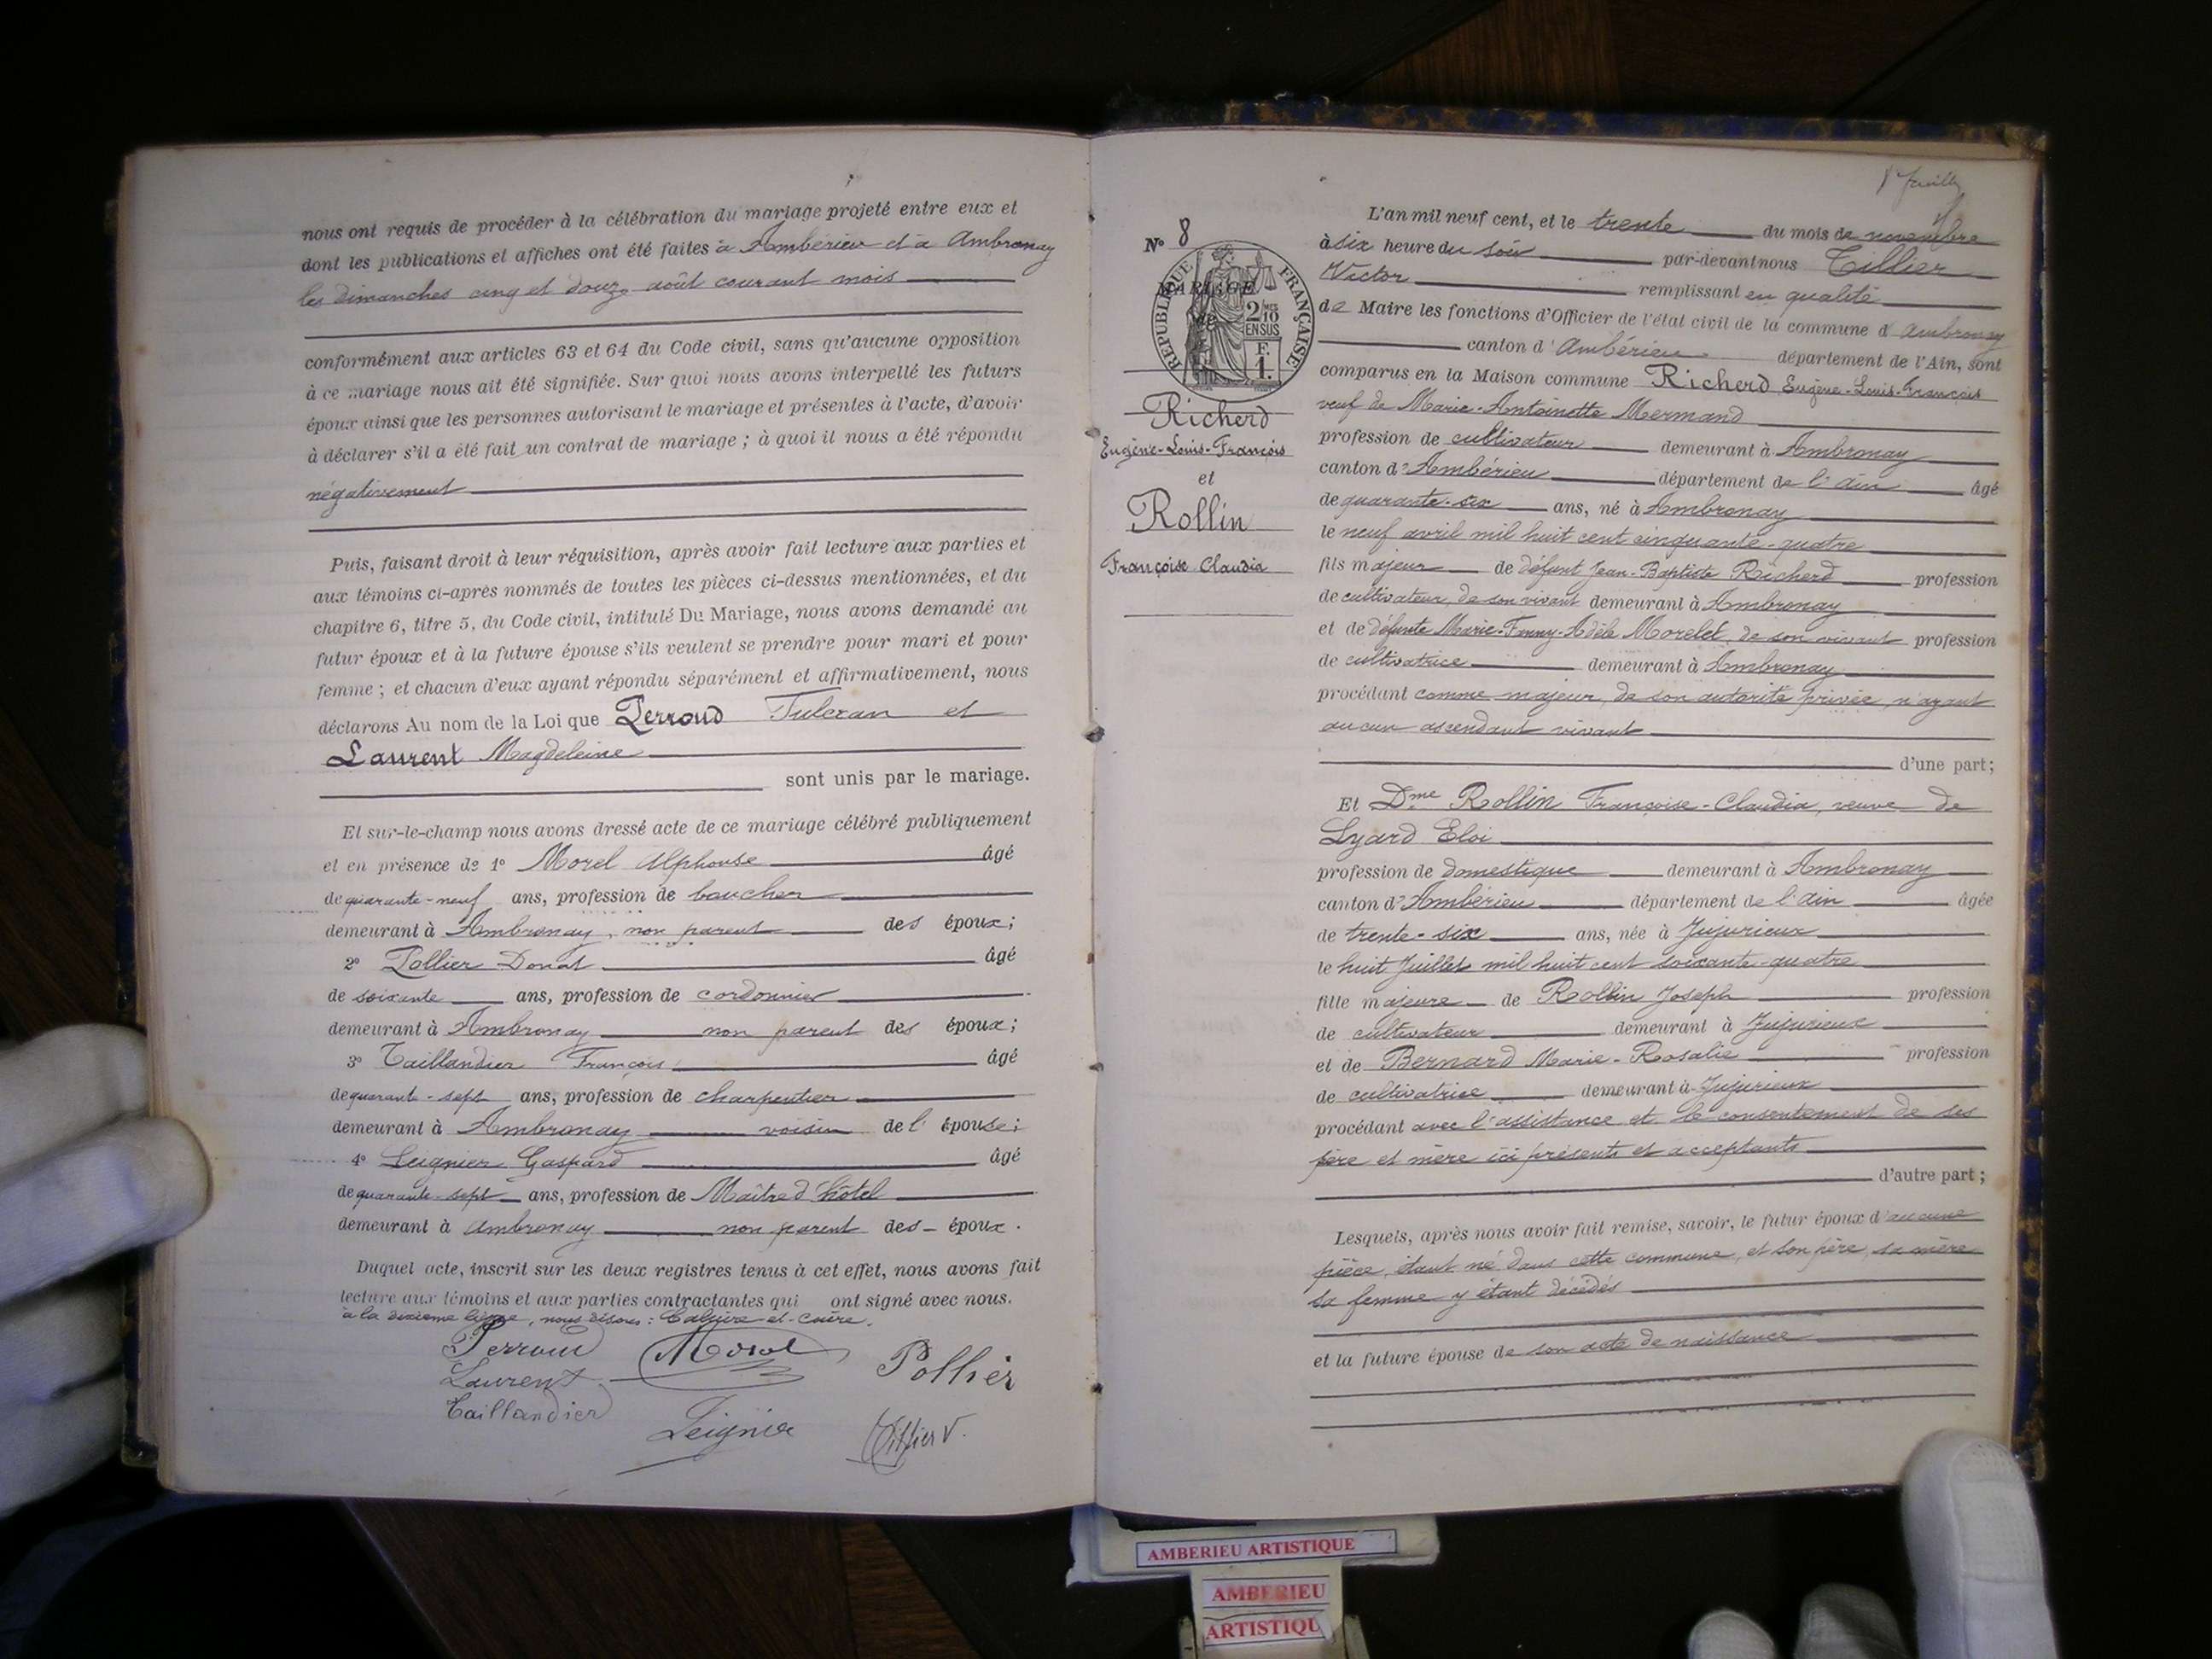 nous ont requis de procéder à la célébration du mariage projeté entre eux et
dont les publications et affiches ont été faites à Ambérieu et à Ambronay
les dimanches cinq et douze août courant mois
conformément aux articles 63 et 64 du Code civil, sans qu'aucune opposition
à ce mariage nous ait été signifiée. Sur quoi nous avons interpellé les futurs
époux ainsi que les personnes autorisant le mariage et présentes à l'acte, d'avoir
à déclarer s'il a été fait un contrat de mariage ; à quoi il nous a été répondu
négativement
Puis, faisant droit à leur réquisition, après avoir fait lecture aux parties et
aux témoins ci-après nommés de toutes les pièces ci-dessus mentionnées, et du
chapitre 6, titre 5, du Code civil, intitulé Du Mariage, nous avons demandé au
futur époux et à la future épouse s'ils veulent se prendre pour mari et pour
femme ; et chacun d'eux ayant répondu séparément et affirmativement, nous
déclarons Au nom de la Loi que Perroud Fulcran et
Laurent Magdeleine
sont unis par le mariage.
Et sur-le-champ nous avons dressé acte de ce mariage célébré publiquement
et en présence de 1° Morel Alphonse âgé
de quarante-neuf ans, profession de boucher
demeurant à Ambronay, non parent des époux ;
2° Pollier Donat âgé
de soixante ans, profession de cordonnier
demeurant à Ambronay non parent des époux ;
3° Taillandier François âgé
de quarante-sept ans, profession de charpentier
demeurant à Ambronay voisin de l'épouse ;
4° Leignier Gaspard âgé
de quarante-sept ans, profession de Maître d'hôtel
demeurant à Ambronay non parent des époux.
Duquel acte, inscrit sur les deux registres tenus à cet effet, nous avons fait
lecture aux témoins et aux parties contractantes qui ont signé avec nous.
à la dixième ligne, nous disons : Caluire-et-Cuire.
Perroud Morel Pollier
Laurent
Taillandier Leignier Tillier V.
N° 8
MARIAGE
de
RÉPUBLIQUE FRANÇAISE
2/10 EN SUS
F. 1.
Richerd
Eugène-Louis-François
et
Rollin
Françoise Claudia
L'an mil neuf cent, et le trente du mois de novembre
à six heure du soir par-devant nous Tillier
Victor remplissant en qualité
de Maire les fonctions d'Officier de l'état civil de la commune d'Ambronay
canton d'Ambérieu département de l'Ain, sont
comparus en la Maison commune Richerd Eugène-Louis-François
veuf de Marie-Antoinette Mermand
profession de cultivateur demeurant à Ambronay
canton d'Ambérieu département de l'Ain âgé
de quarante-six ans, né à Ambronay
le neuf avril mil huit cent cinquante-quatre
fils majeur de défunt Jean-Baptiste Richerd profession
de cultivateur, de son vivant demeurant à Ambronay
et de défunte Marie-Fanny-Adèle Morelet, de son vivant profession
de cultivatrice demeurant à Ambronay
procédant comme majeur, de son autorité privée, n'ayant
aucun ascendant vivant
d'une part ;
Et Dme Rollin Françoise-Claudia, veuve de
Lyard Eloi
profession de domestique demeurant à Ambronay
canton d'Ambérieu département de l'Ain âgée
de trente-six ans, née à Jujurieux
le huit Juillet mil huit cent soixante-quatre
fille majeure de Rollin Joseph profession
de cultivateur demeurant à Jujurieux
et de Bernard Marie-Rosalie profession
de cultivatrice demeurant à Jujurieux
procédant avec l'assistance et le consentement de ses
père et mère ici présents et acceptants
d'autre part ;
Lesquels, après nous avoir fait remise, savoir, le futur époux d'aucune
pièce, étant né dans cette commune, et son père, sa mère
sa femme y étant décédés
et la future épouse de son acte de naissance
AMBERIEU ARTISTIQUE
AMBERIEU
ARTISTIQU